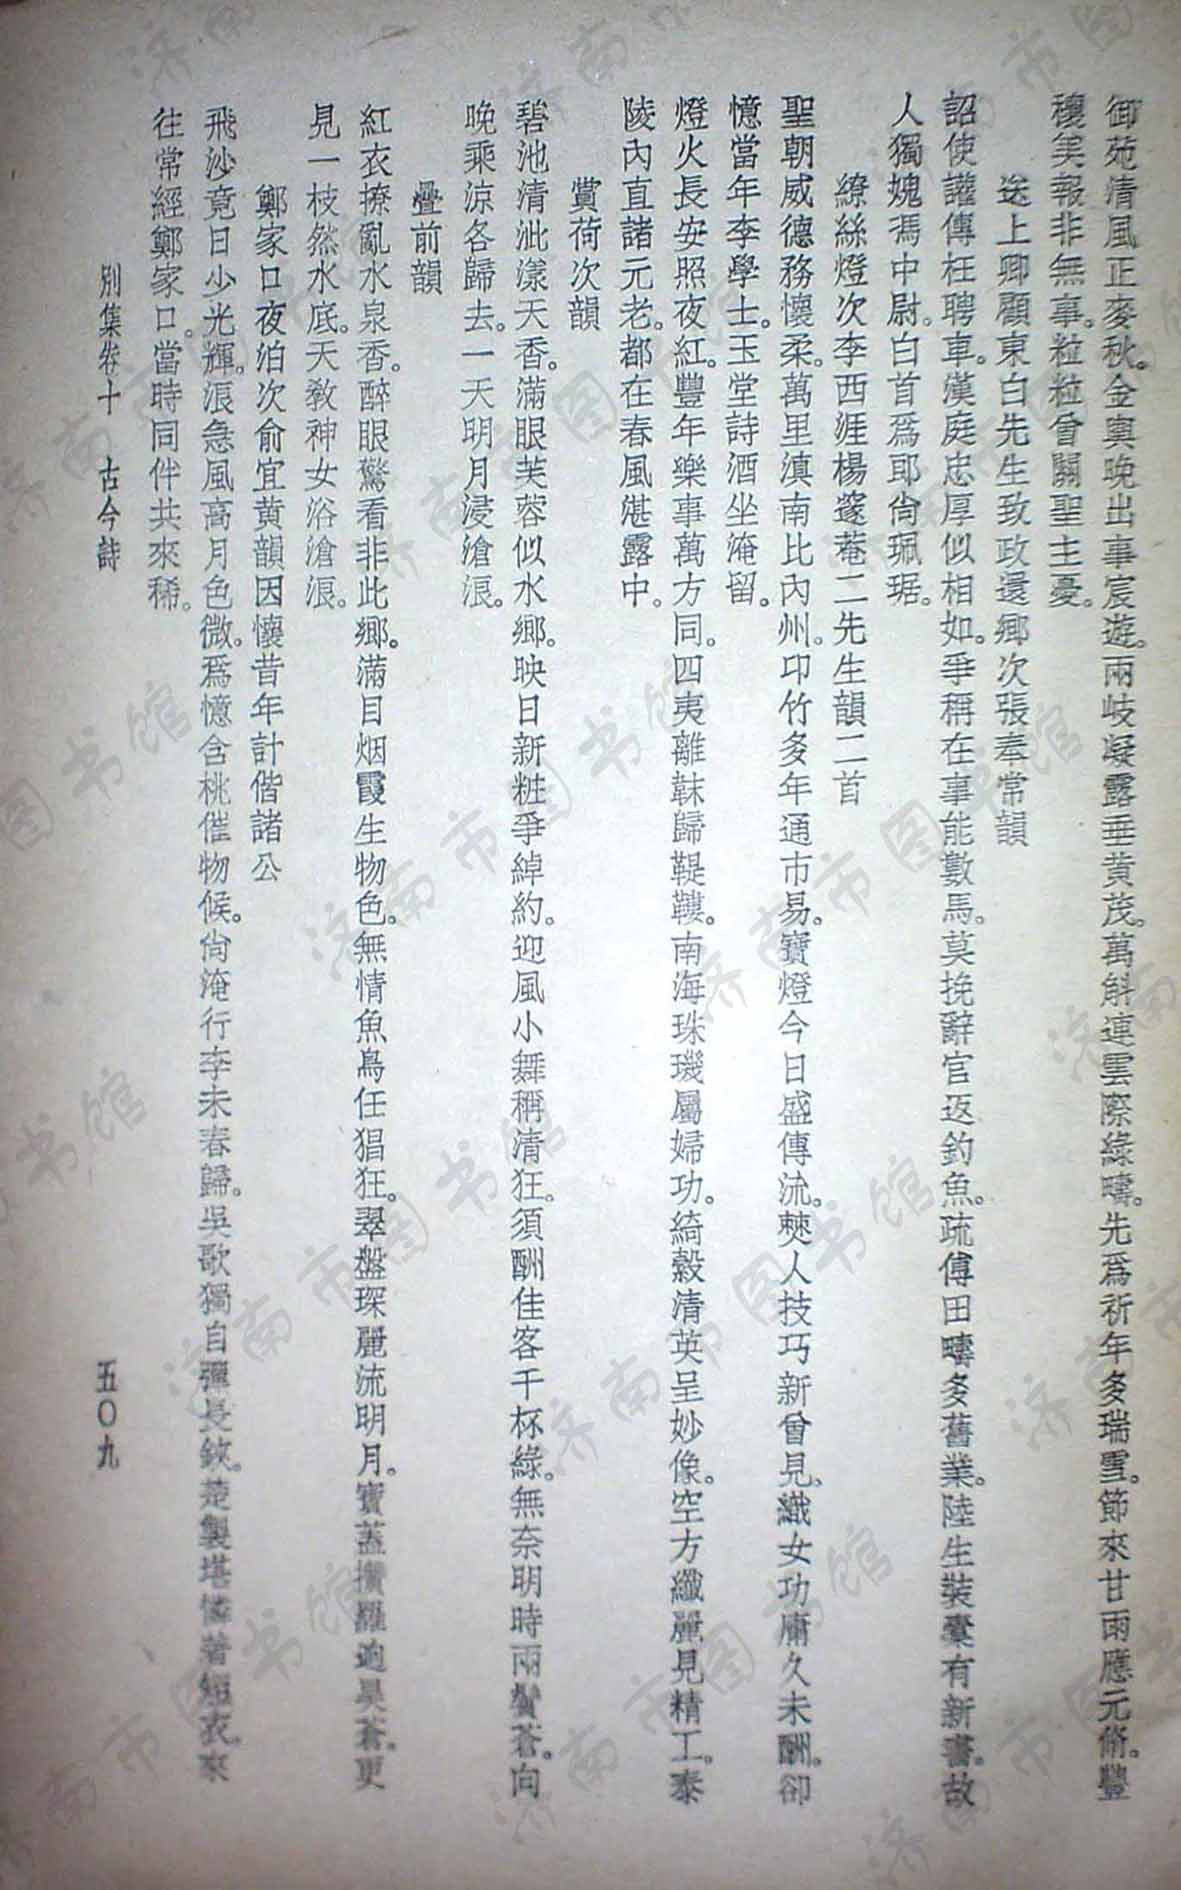 御苑清風正麥秋。金輿晚出事宸遊。兩岐凝露垂黄茂。萬斛連雲際綠疇。先爲祈年多瑞雪。節來甘雨應元脩。豐
穰美報非無事。粒粒曾關聖主憂。
送上卿顧東白先生致政還鄉次張奉常韻
詔使讙傳枉聘車。漢庭忠厚似相如。爭稱在事能數馬。莫挽辭官返釣魚。疏傅田疇多舊業。陸生裝橐有新書。故
人獨媿馮中尉。白首爲郎尙珮琚。
繚絲燈次李西涯楊邃菴二先生韻二首
聖朝威德務懷柔。萬里滇南比內州。卭竹多年通市易。寶燈今日盛傳流。僰人技巧新曾見。織女功庸久未酬。卻
憶當年李學士。玉堂詩酒坐淹留。
燈火長安照夜紅。豐年樂事萬方同。四夷離靺歸鞮鞻。南海珠璣屬婦功。綺縠清英呈妙像。空方纖麗見精工。泰
陵內直諸元老。都在春風湛露中。
賞荷次韻
碧池清泚漾天香。滿眼芙蓉似水鄉。映日新粧爭綽約。迎風小舞稱清狂。須酬佳客千杯綠。無奈明時兩鬢蒼。向
晚乘涼各歸去。一天明月浸滄浪。
疊前韻
紅衣撩亂水泉香。醉眼驚看非此鄉。滿目烟霞生物色。無情魚鳥任猖狂。翠盤琛麗流明月。寶蓋攢羅逈昊蒼。更
見一枝然水底。天敎神女浴滄浪。
鄭家口夜泊次俞宜黄韻因懷昔年計偕諸公
飛沙竟日少光輝。浪急風高月色微。爲憶含桃催物候。尙淹行李未春歸。吳歌獨自彈長鋏。楚製堪憐著短衣。來
往常經鄭家口。當時同伴共來稀。
別集卷十 古今詩 五〇九
济南市图书馆